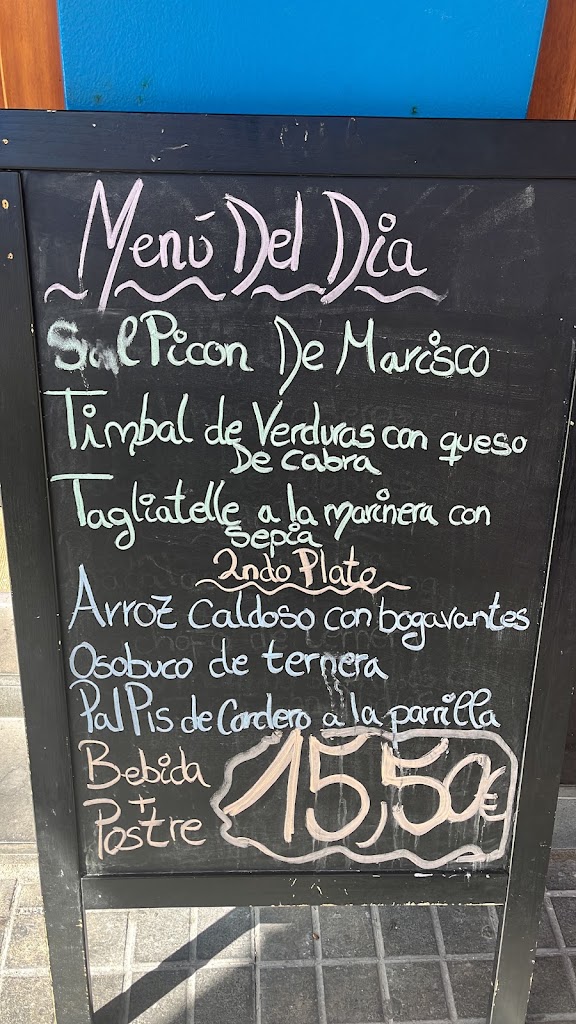 Menú Del Dia
SalPicon De Marisco
Timbal de Verduras con queso
De cabra
Tagliatelle a la marinera con
sepia
2ndo Plato
Arroz Caldoso con bogavantes
Osobuco de ternera
PalPis de Cordero a la parrilla
Bebida
+
Postre
15,50€